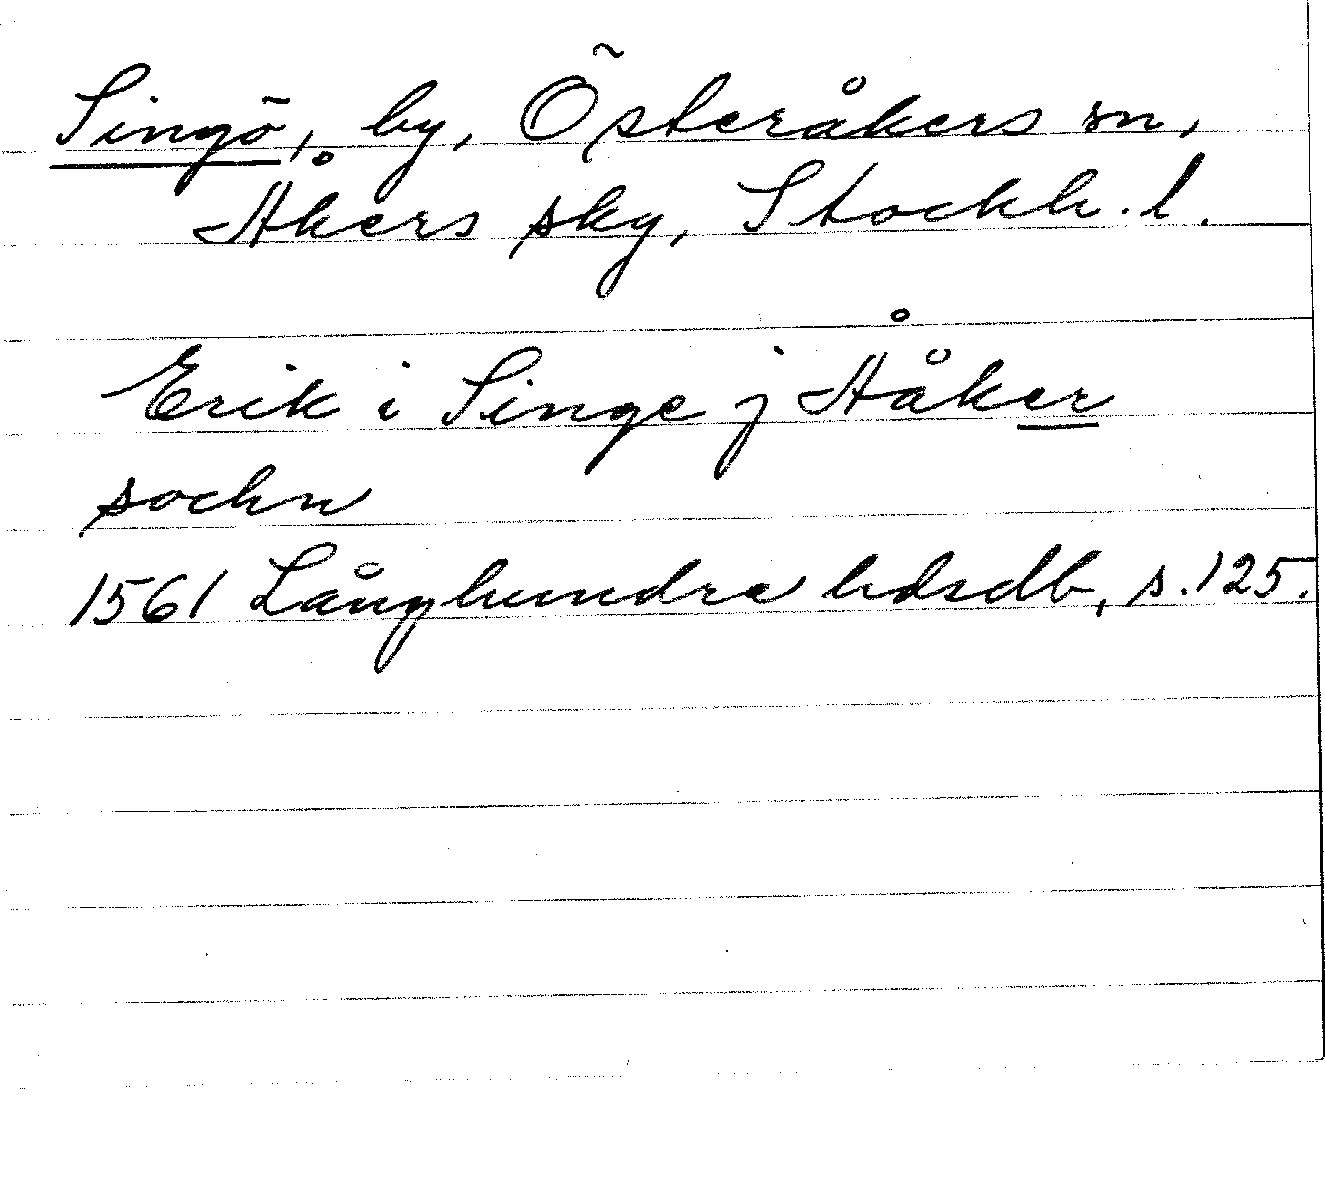 Singö, by, Österåkers sn,
Åkers sky, Stockh. l.
Erik i Singe j Ååker
sochn
1561 Långhundra hdsdb, s. 125.